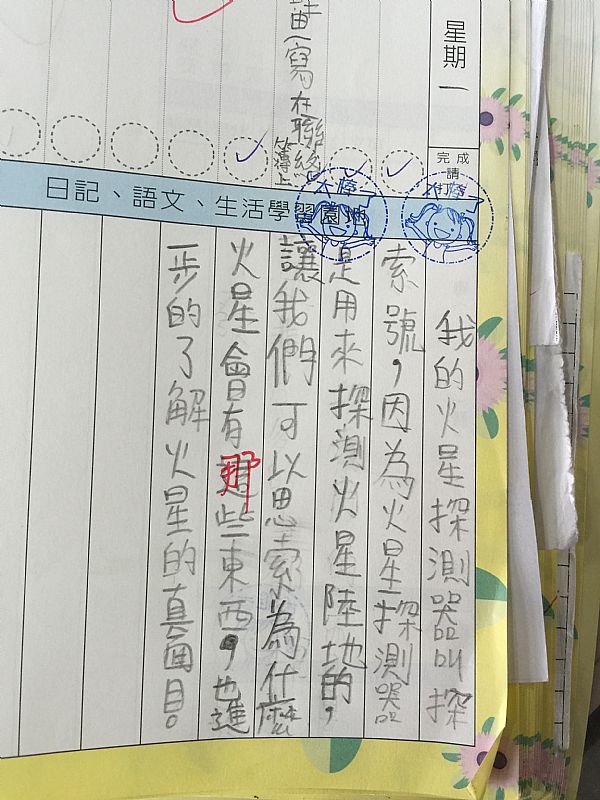 星期一
完成請打✓
蛙(寫在聯絡
簿上
日記、語文、生活學習園地
我的火星探測器叫探
索號，因為火星探測器
是用來探測火星陸地的，
讓我們可以思索為什麼
火星會有那些東西，也進
一步的了解火星的真面目。